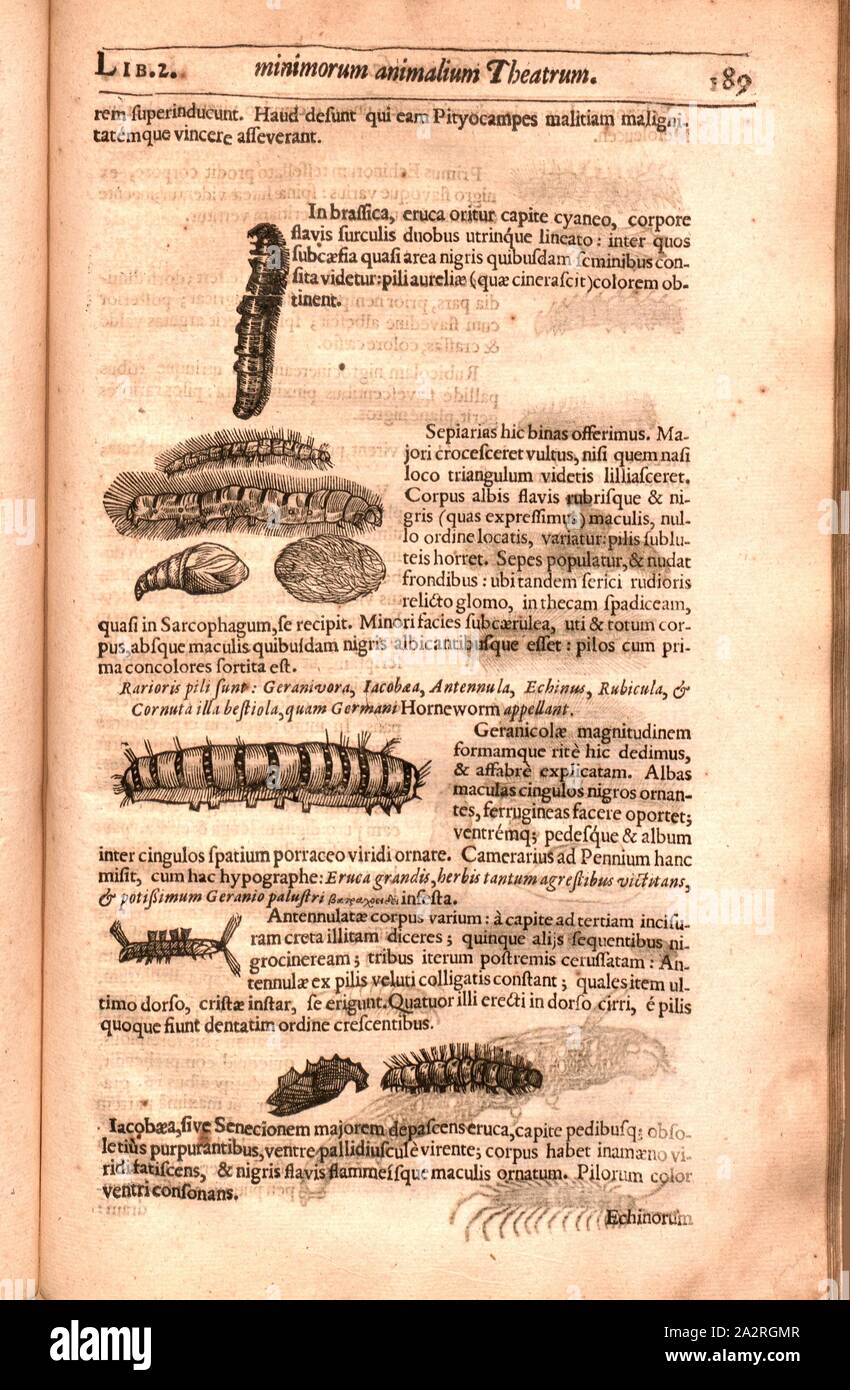 LIB.2. minimorum animalium Theatrum. 189
rem ſuperinducunt. Haud deſunt qui eam Pityocampes malitiam maligni-
tatemque vincere aſſeverant.
In braſſica, eruca oritur capite cyaneo, corpore
flavis ſurculis duobus utrinque lineato: inter quos
ſubcæſia quaſi area nigris quibuſdam ſeminibus con-
ſita videtur: pili aureliæ (quæ cineraſcit) colorem ob-
tinent.
Sepiarias hic binas offerimus. Ma-
jori croceſceret vultus, niſi quem naſi
loco triangulum videtis lilliaſceret.
Corpus albis flavis rubriſque & ni-
gris (quas expreſſimus) maculis, nul-
lo ordine locatis, variatur: pilis ſublu-
teis horret. Sepes populatur, & nudat
frondibus: ubi tandem ſerici rudioris
relicto glomo, in thecam ſpadiceam,
quaſi in Sarcophagum, ſe recipit. Minori facies ſubcærulea, uti & totum cor-
pus, abſque maculis quibuſdam nigris albicantibuſque eſſet: pilos cum pri-
ma concolores ſortita eſt.
Rarioris pili ſunt: Geranivora, Iacobæa, Antennula, Echinus, Rubicula, &
Cornuta illa beſtiola, quam Germani Horneworm appellant.
Geranicolæ magnitudinem
formamque ritè hic dedimus,
& affabrè explicatam. Albas
maculas cingulos nigros ornan-
tes, ferrugineas facere oportet;
ventrémq; pedeſque & album
inter cingulos ſpatium porraceo viridi ornare. Camerarius ad Pennium hanc
miſit, cum hac hypographe: Eruca grandis, herbis tantum agreſtibus victitans,
& potißimum Geranio paluſtri βατραχοειδεῖ infeſta.
Antennulatæ corpus varium: à capite ad tertiam inciſu-
ram creta illitam diceres; quinque alijs ſequentibus ni-
grocineream; tribus iterum poſtremis ceruſſatam: An-
tennulæ ex pilis veluti colligatis conſtant; quales item ul-
timo dorſo, criſtæ inſtar, ſe erigunt. Quatuor illi erecti in dorſo cirri, é pilis
quoque fiunt dentatim ordine creſcentibus.
Iacobæa, ſive Senecionem majorem depaſcens eruca, capite pedibuſq; obſo-
letiùs purpurantibus, ventre pallidiuſculè virente; corpus habet inamæno vi-
ridi fatiſcens, & nigris flavis flammeiſque maculis ornatum. Pilorum color
ventri conſonans.
Echinorum
alamy
Image ID: 2A2RGMR
www.alamy.com